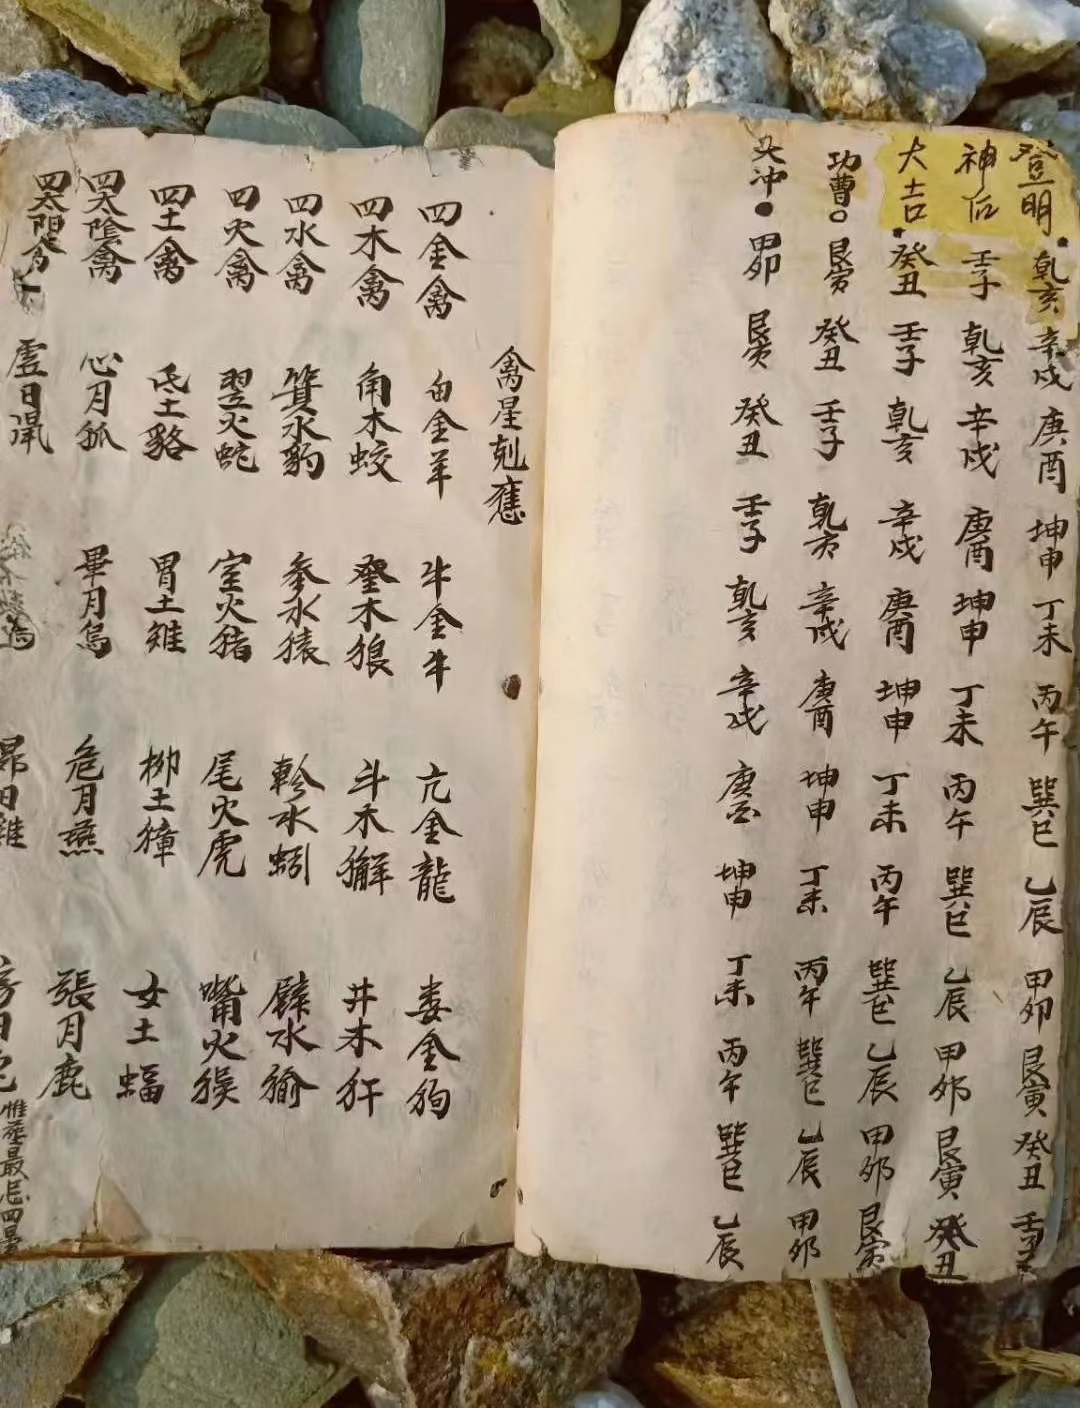 登明 乾亥 辛戌 庚酉 坤申 丁未 丙午 巽巳 乙辰 甲卯 艮寅 癸丑 壬子
神后 壬子 乾亥 辛戌 庚酉 坤申 丁未 丙午 巽巳 乙辰 甲卯 艮寅 癸丑
大吉 癸丑 壬子 乾亥 辛戌 庚酉 坤申 丁未 丙午 巽巳 乙辰 甲卯 艮寅
功曹 艮寅 癸丑 壬子 乾亥 辛戌 庚酉 坤申 丁未 丙午 巽巳 乙辰 甲卯
太冲 甲卯 艮寅 癸丑 壬子 乾亥 辛戌 庚酉 坤申 丁未 丙午 巽巳 乙辰
禽星剋應
四金禽 白金羊 牛金牛 亢金龍 娄金狗
四木禽 角木蛟 奎木狼 斗木獬 井木犴
四水禽 箕水豹 参水猿 軫水蚓 壁水貐
四火禽 翌火蛇 室火猪 尾火虎 嘴火猴
四土禽 氐土貉 胃土雉 柳土獐 女土蝠
四太陰禽 心月狐 畢月烏 危月燕 張月鹿
四太陽禽 虚日鼠 昴日雞 房日兔